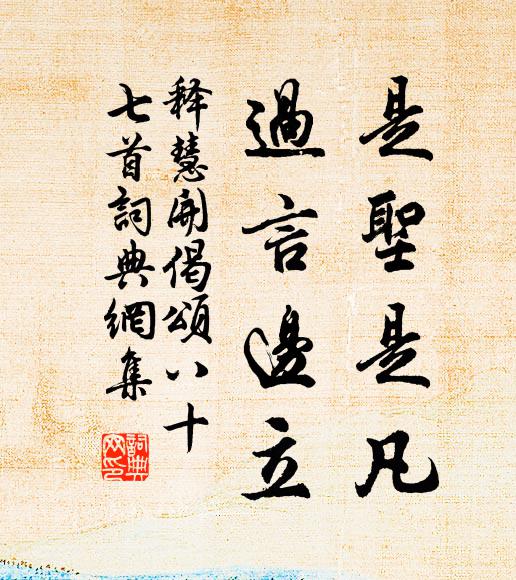 是聖是凡
過言邊立
释慧開偈頌八十
七首詞典網集
詞典网印